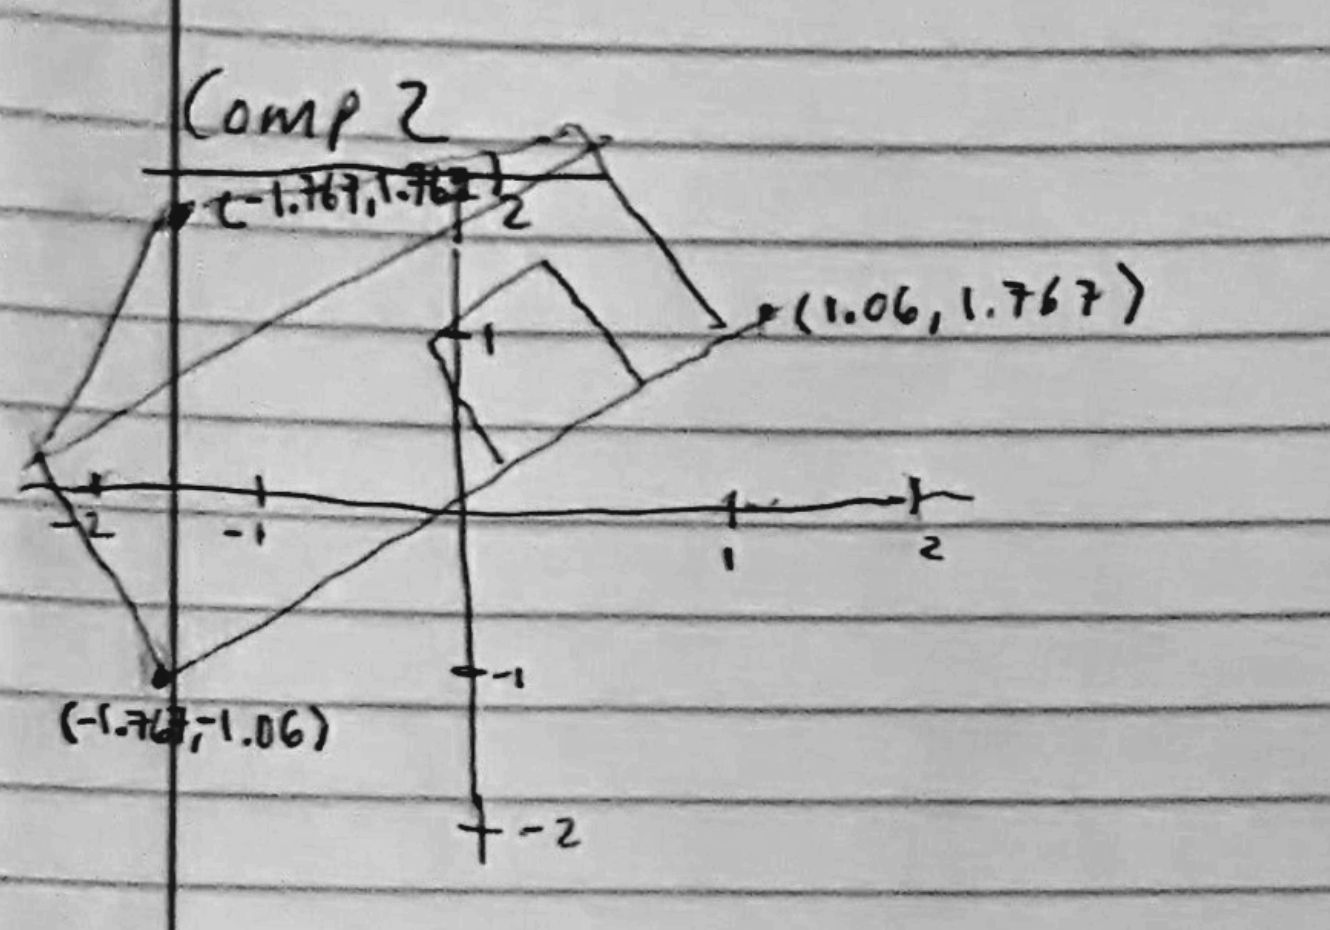 Comp 2
(-1.767, 1.767)
2
(1.06, 1.767)
1
-2 -1 1 2
-1
(-1.767, -1.06)
-2